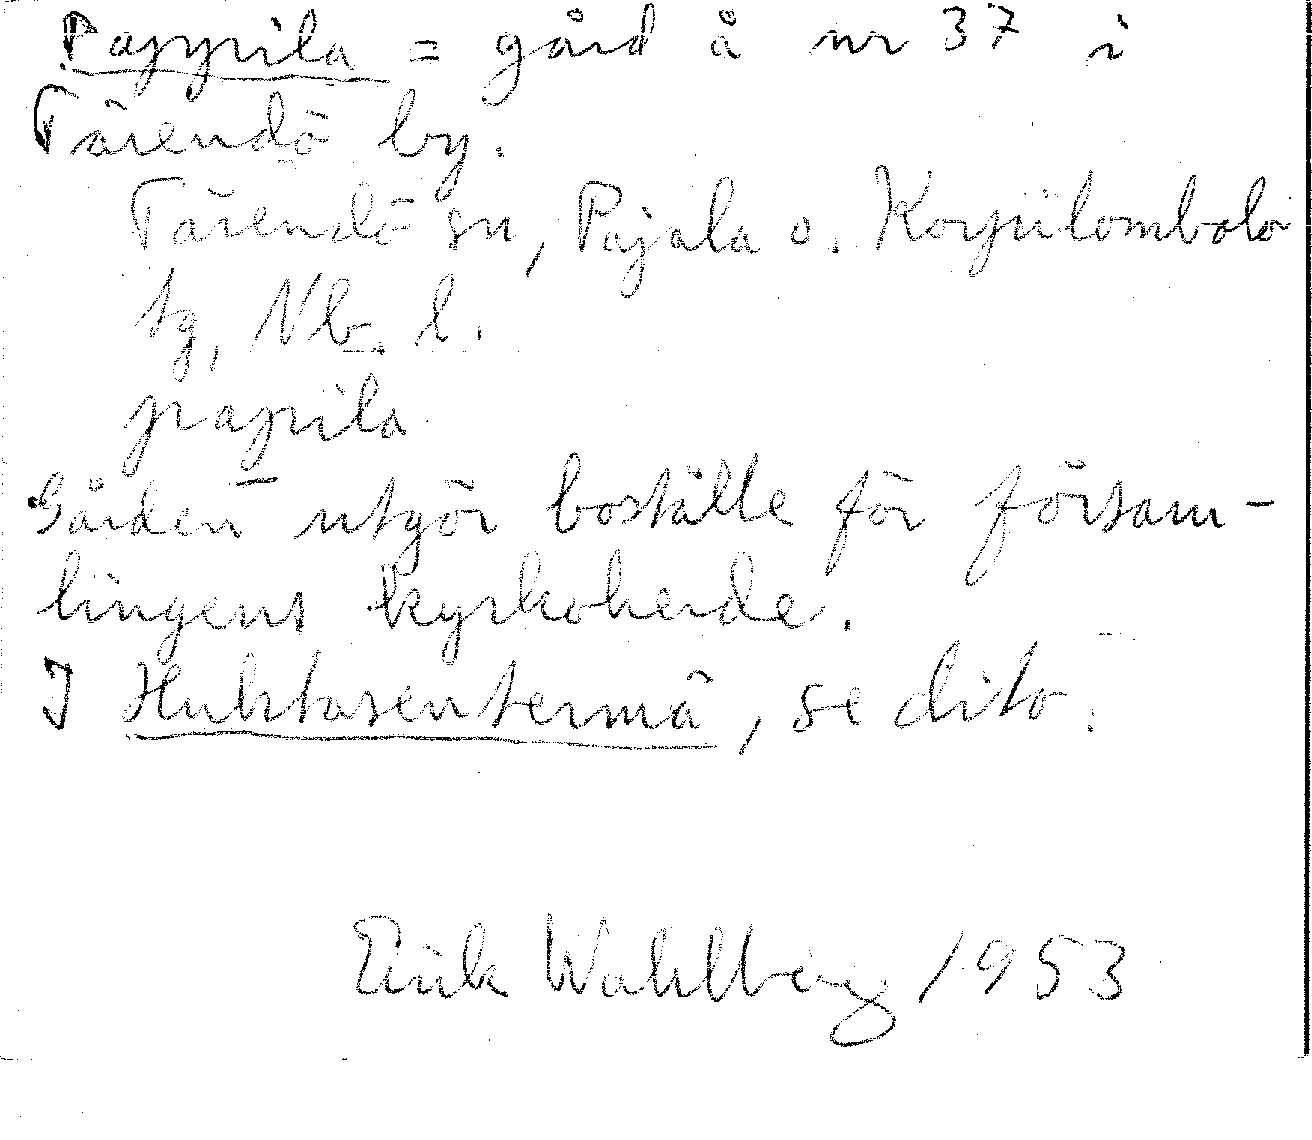 Pappila = gård å nr 37 i
Tärendö by.
Tärendö sn, Pajala o. Korpilombolo
tg, Nb. l.
pap̄ila
Gården utgör boställe för försam-
lingens kyrkoherde.
I Huhtasentermä, se dito.
Erik Wahlberg 1953